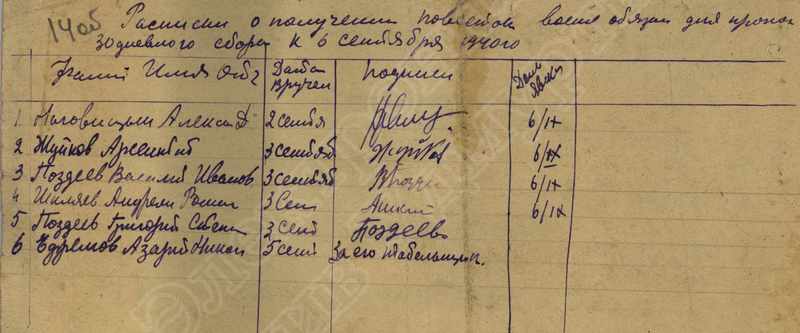 14об
Расписки о получении повесток воен обязан для прохож
30дневного сбора к 6 сентября 1940го
Фамил Имя Отч Дата вручен подписи Дата явки
1 Наговицын Алексан 2 сентя 6/IX
2 Жуйков Арсентий 3 сентяб Жуйков 6/IX
3 Поздеев Василий Иванов 3 сентяб 6/IX
4 Шиляев Андреян Роман 3 сен 6/IX
5 Поздеев Григорий Савел 3 сент Поздеев
6 Ефремов Азарий Никол 5 сент За его табельщик.